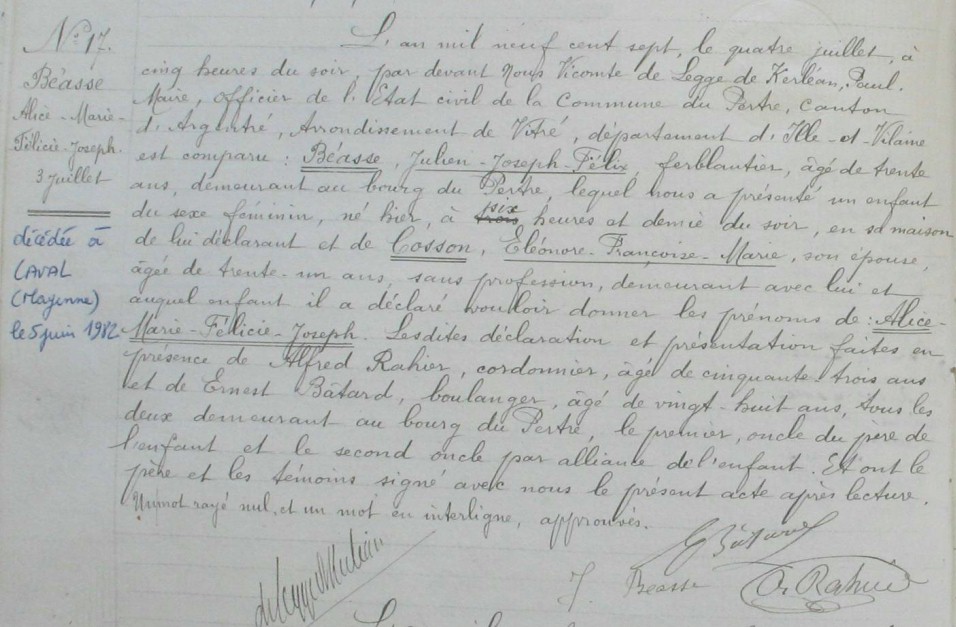 N° 17.
Béasse
Alice - Marie-
Félicie-Joseph.
3 Juillet
décédée à
LAVAL
(Mayenne)
le 5 juin 1982
L'an mil neuf cent sept, le quatre juillet, à
cinq heures du soir, par devant Nous Vicomte de Legge de Kerléan, Paul.
Maire, officier de l'Etat civil de la Commune du Pertre, canton
d'Argentré, Arrondissement de Vitré, département d'Ille-et-Vilaine
est comparu : Béasse, Julien-Joseph-Félix, ferblantier, âgé de trente
ans, demeurant au bourg du Pertre, lequel nous a présenté un enfant
du sexe féminin, né hier, à trois six heures et demie du soir, en sa maison
de lui déclarant et de Cosson, Eléonore-Françoise-Marie, son épouse,
âgée de trente-un ans, sans profession, demeurant avec lui et
auquel enfant il a déclaré vouloir donner les prénoms de : Alice-
Marie-Félicie-Joseph. Lesdites déclaration et présentation faites en
présence de Alfred Rahier, cordonnier, âgé de cinquante-trois ans
et de Ernest Bâtard, boulanger, âgé de vingt-huit ans, tous les
deux demeurant au bourg du Pertre, le premier, oncle du père de
l'enfant et le second oncle par alliance de l'enfant. Et ont le
père et les témoins signé avec nous le présent acte après lecture.
Un mot rayé nul, et un mot en interligne, approuvés.
E Bâtard
J. Béasse
A. Rahier